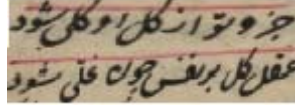 جزو تو از کل او کلی شود
عقل کل بر نفس چون غلی شود